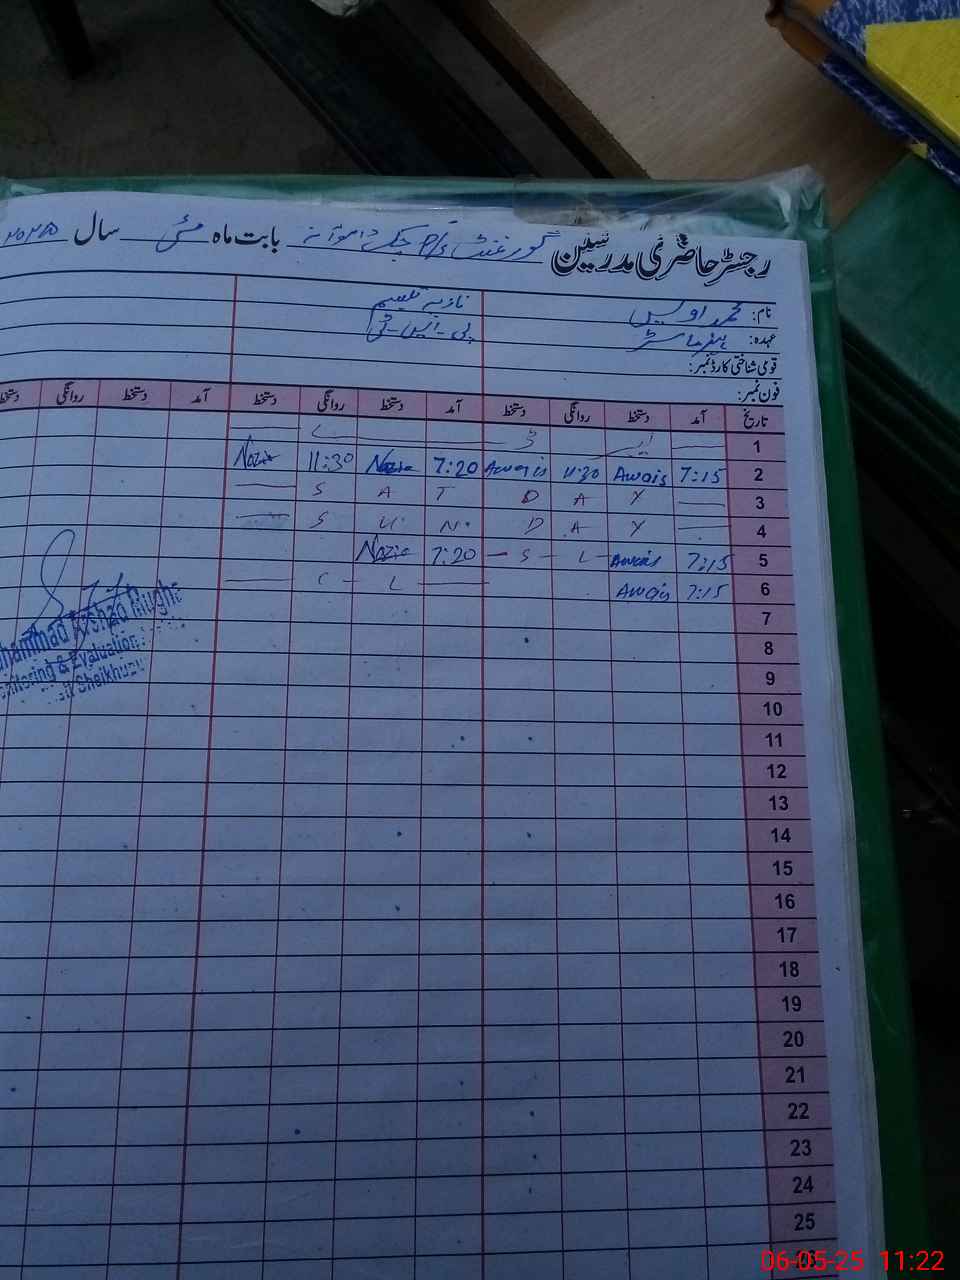 رجسٹر حاضری مدرسین گورنمنٹ بابت ماہ مئی سال ۲۰۲۵
نام: محمد اویس نازیہ
عہدہ: ہیڈ ماسٹر پی-ایس-ٹی
قومی شناختی کارڈ نمبر:
فون نمبر:
تاریخ آمد دستخط روانگی دستخط آمد دستخط روانگی دستخط آمد دستخط روانگی دستخط
1
2 7:15 Awais 11:30 Awais 7:20 Nazia 11:30 Nazia
3 S A T D A Y
4 S U N D A Y
5 7:15 Awais L S 7:20 Nazia
6 7:15 Awais C L
7
8
9
10
11
12
13
14
15
16
17
18
19
20
21
22
23
24
25
26
Muhammad Arshad
Monitoring & Evaluation
06-05-25 11:22